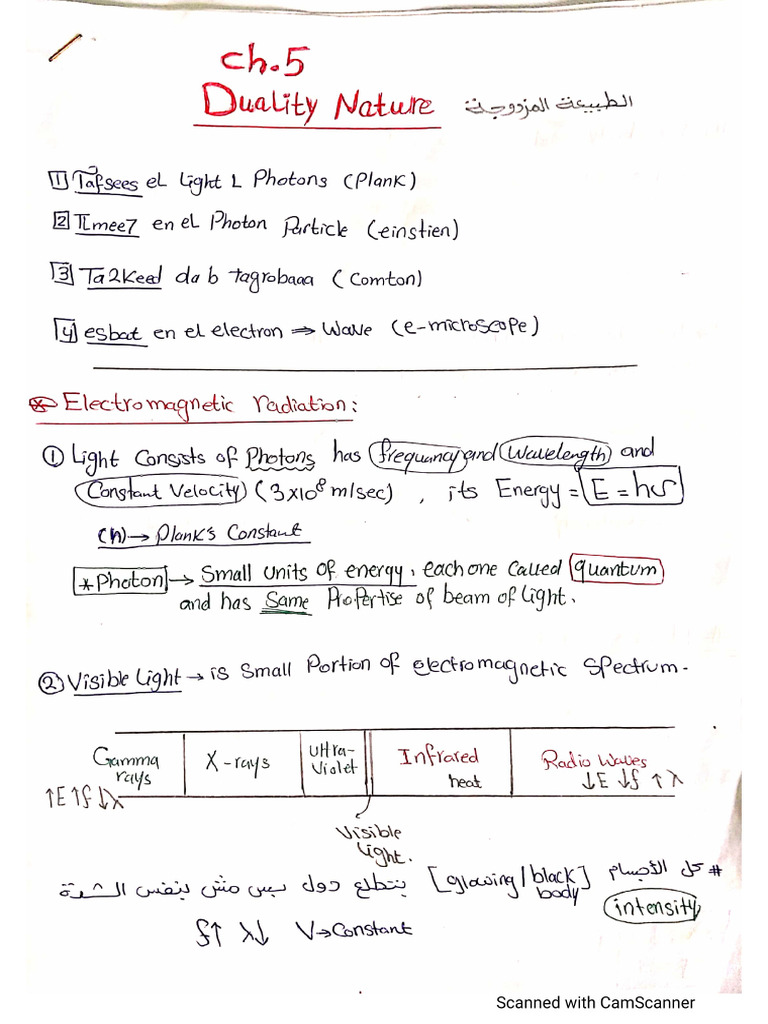 Ch.5
Duality Nature الطبيعة المزدوجة
1 Tafsees el light L Photons (Plank)
2 Tlmee7 en el Photon Particle (einstien)
3 Ta2Keed da b tagrobaaa (Comton)
4 esbat en el electron ⇒ Wave (e-microscope)
Electromagnetic radiation:
① Light Consists of Photons has frequancy and Wavelength and
Constant Velocity (3x10⁸ m/sec) , its Energy = E = hυ
(h) → Plank's Constant
*Photon → Small Units of energy, each one Called quantum
and has Same Propertise of beam of Light.
② Visible Light → is Small Portion of electromagnetic Spectrum.
Gamma rays X-rays Ultra-Violet Infrared heat Radio Waves
↑E ↑f ↓λ ↓E ↓f ↑λ
Visible
Light.
# كل الأجسام [glowing/black body] بتطلع دول بس مش بنفس الشدة
intensity
f↑ λ↓ V→Constant
Scanned with CamScanner